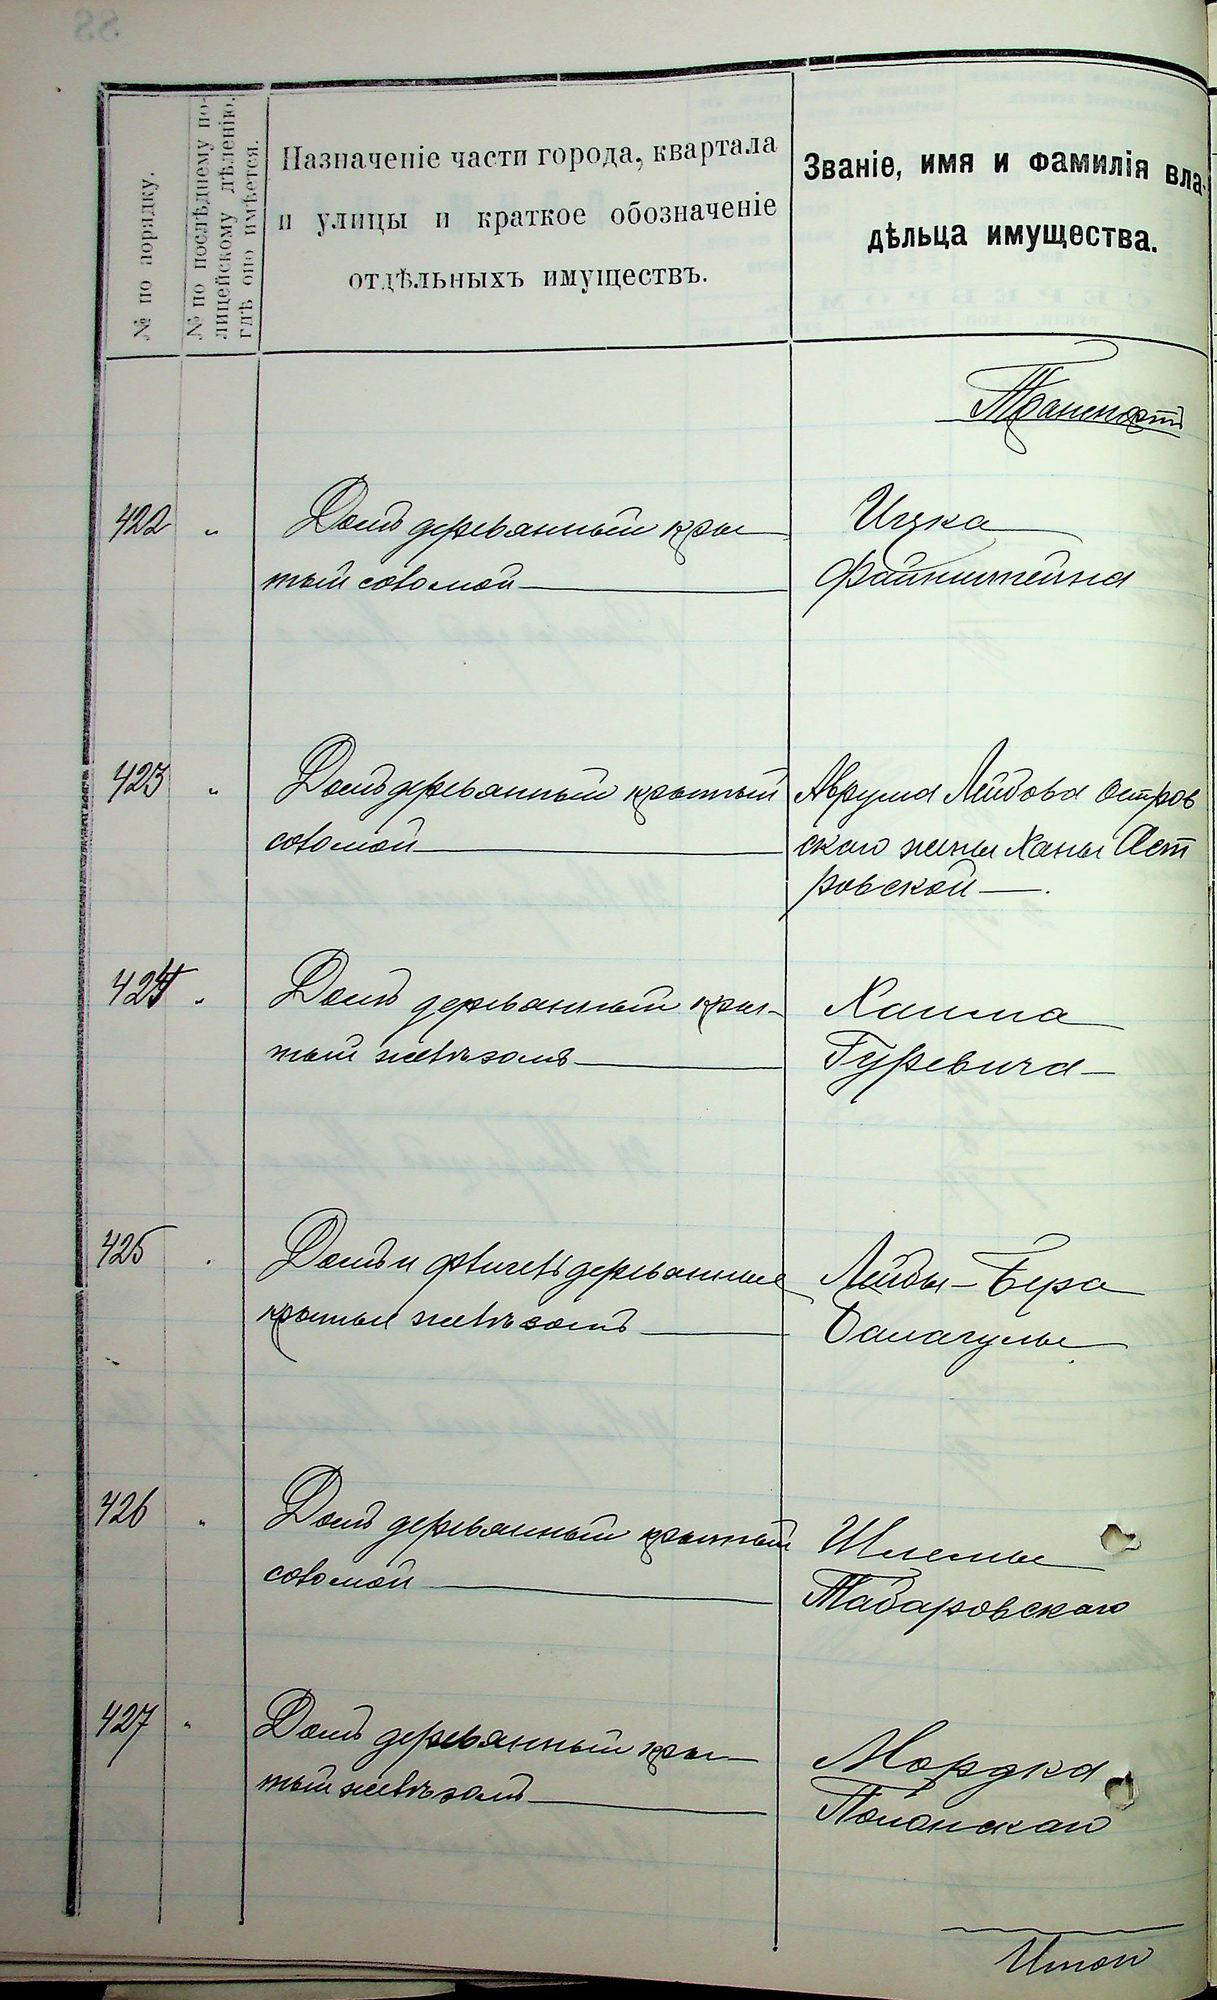 № по порядку.
№ по послѣднему по-
лицейскому дѣленію,
гдѣ оно имѣется.
Назначеніе части города, квартала
и улицы и краткое обозначеніе
отдѣльныхъ имуществъ.
Званіе, имя и фамилія вла-
дѣльца имущества.
Транспортъ
422 " Домъ деревянный кры-
тый соломой
Ицка
Файнштейна
423 " Домъ деревянный крытый
соломой
Аврума Лейбова Остров
скаго жены Ханы Ост
ровской
424 " Домъ деревянный кры-
тый желѣзомъ
Хаима
Гуревича
425 " Домъ и флигель деревянные
крытые желѣзомъ
Лейбы-Бера
Балагулы
426 " Домъ деревянный крытый
соломой
Шлемы
Табаровскаго
427 " Домъ деревянный кры-
тый желѣзомъ
Мордка
Полонскаго
Итого